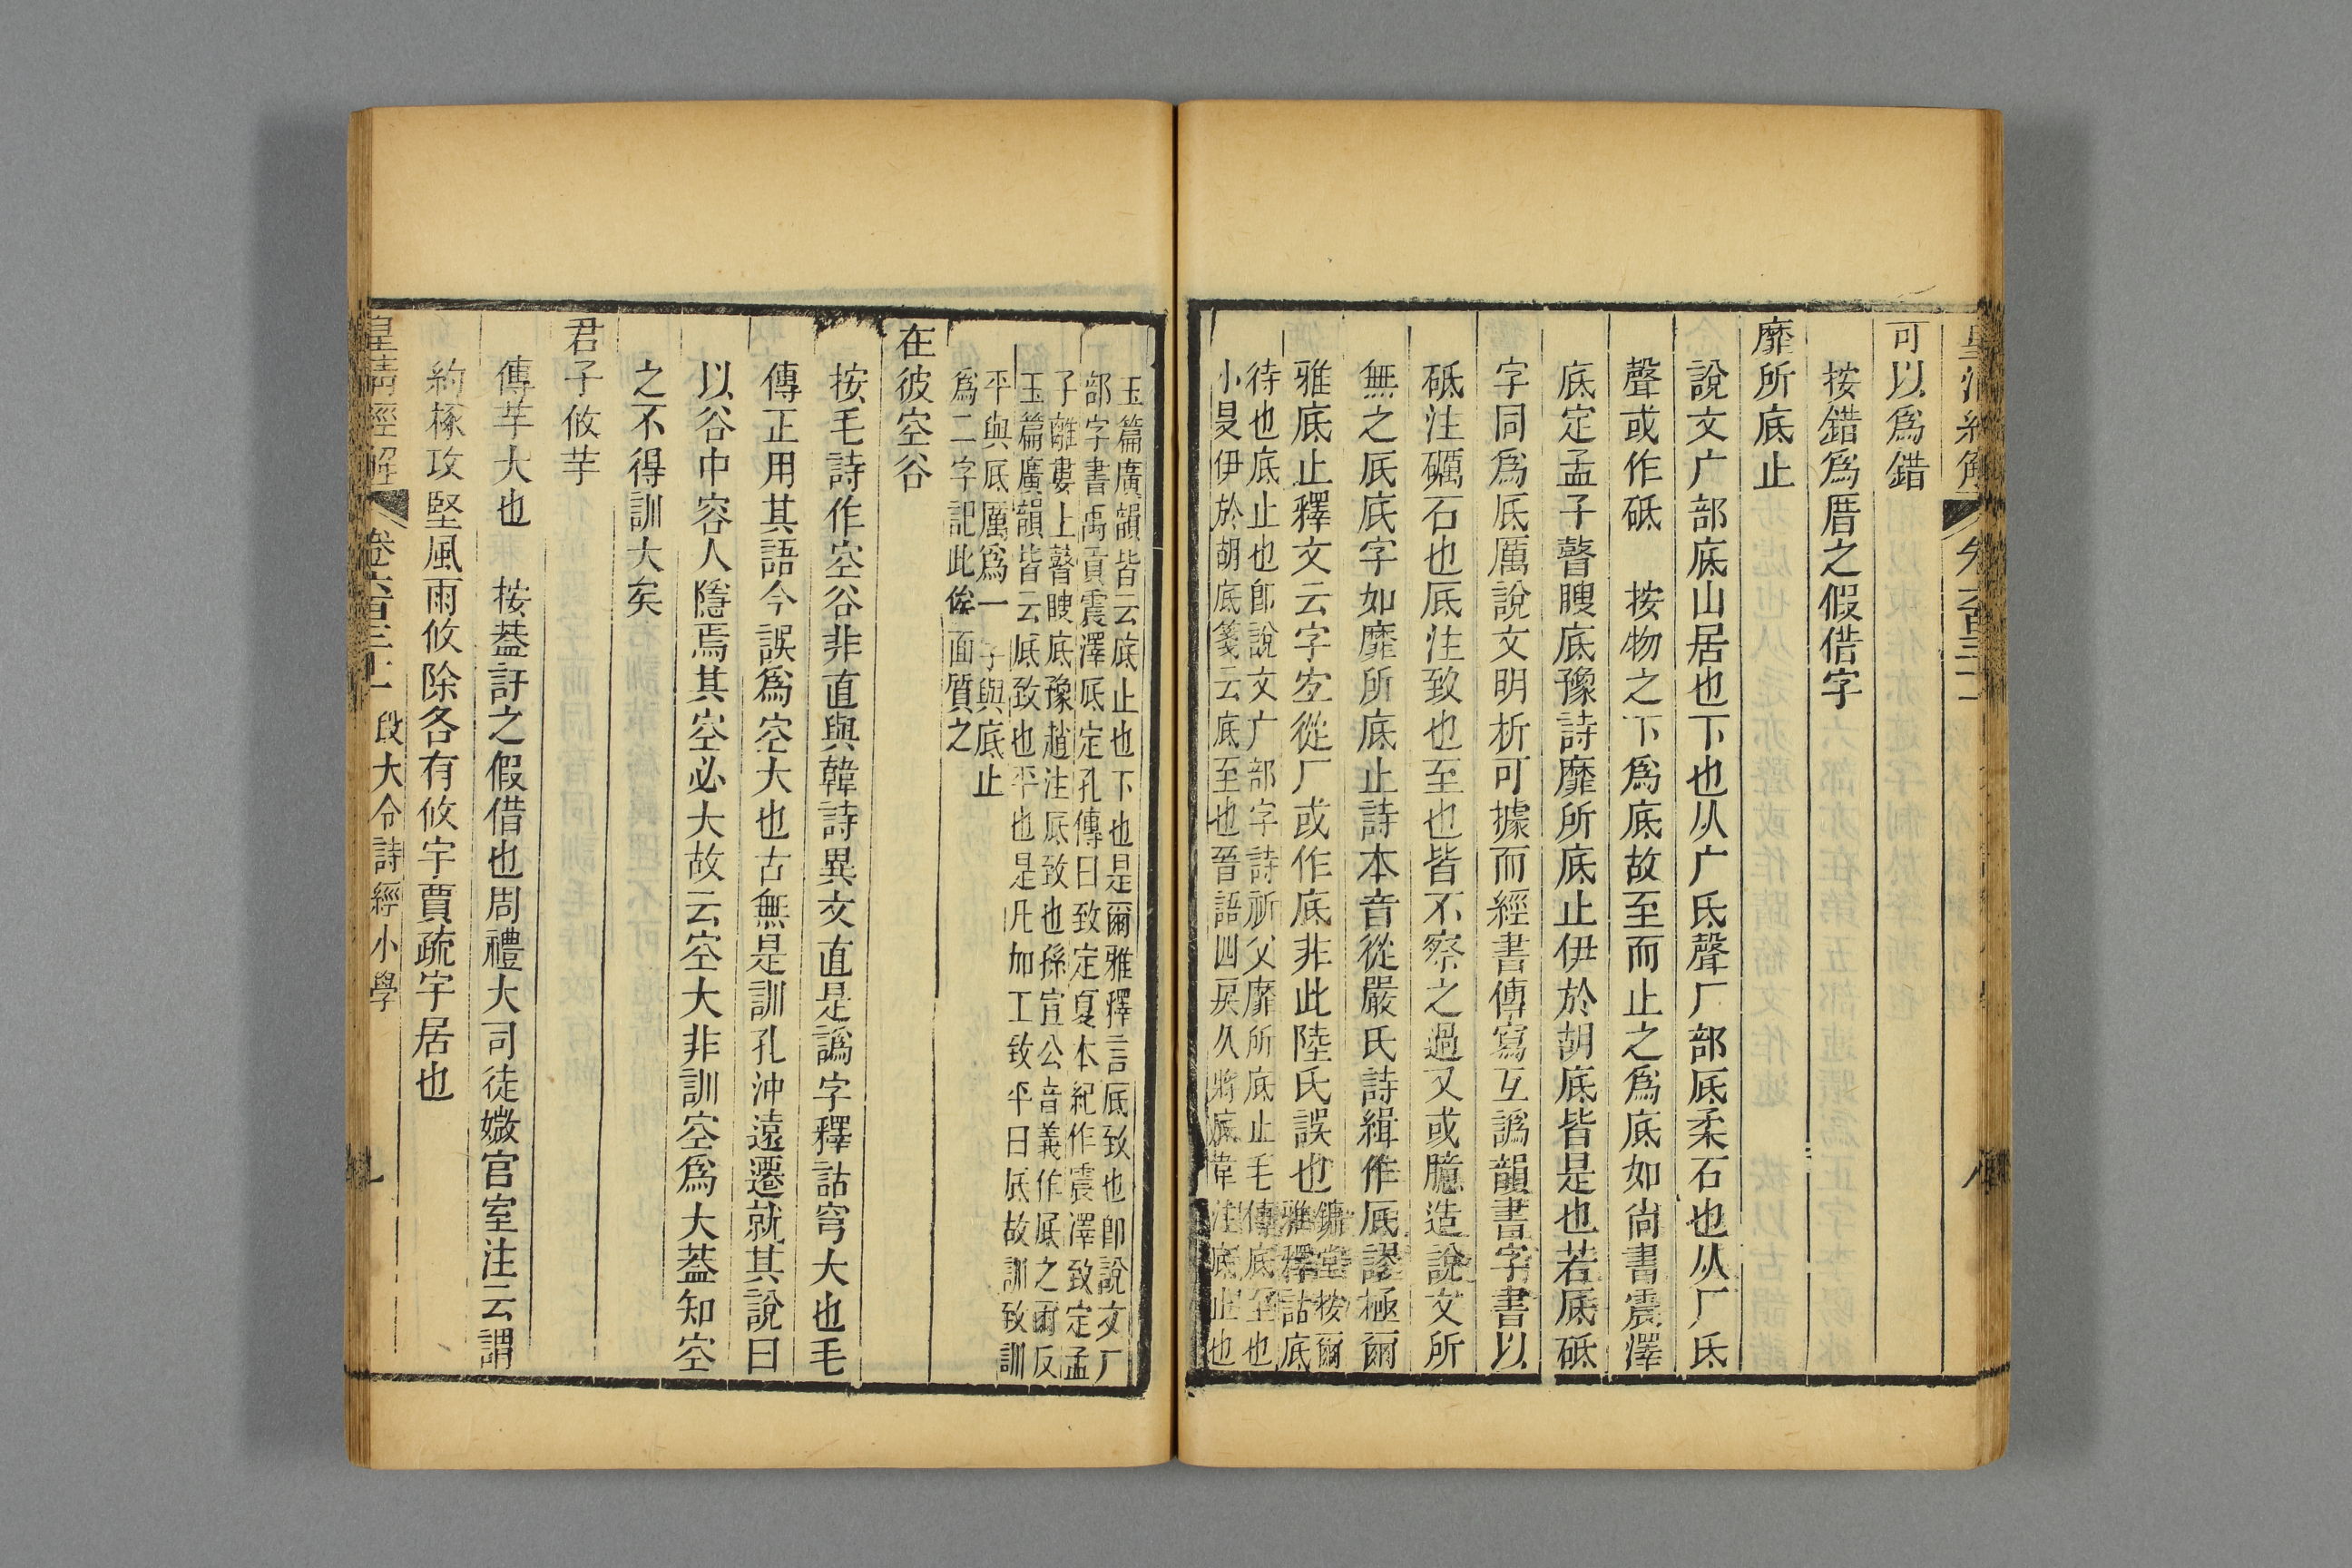 可以爲錯
按錯爲厝之假借字
靡所底止
說文广部底山居也下也从广氐聲厂部厎柔石也从厂氐
聲或作砥　按物之下爲底故至而止之爲底如尙書震澤
底定孟子瞽瞍底豫詩靡所底止伊於胡底皆是也若厎砥
字同爲厎厲說文明析可據而經書傳寫互譌韻書字書以
砥注礪石也厎注致也至也皆不察之過又或臆造說文所
無之厎底字如靡所底止詩本音從嚴氏詩緝作厎謬極爾
雅底止釋文云字宜從厂或作底非此陸氏誤也
鏞堂按爾
雅釋詁底
待也底止也卽說文广部字詩祈父靡所底止毛傳底至也
小旻伊於胡底箋云底至也晉語四戾久將底韋注底止也
玉篇廣韻皆云底止也下也是爾雅釋言厎致也卽說文厂
部字書禹貢震澤厎定孔傳曰致定夏本紀作震澤致定孟
子離婁上瞽瞍厎豫趙注厎致也孫宣公音義作厎之爾反
玉篇廣韻皆云厎致也平也是凡加工致平曰厎故訓致訓
平與厎厲爲一　字與底止
爲二字記此俟面質之
在彼空谷
按毛詩作空谷非直與韓詩異文直是譌字釋詁穹大也毛
傳正用其語今誤爲空大也古無是訓孔沖遠遷就其說曰
以谷中容人隱焉其空必大故云空大非訓空爲大葢知空
之不得訓大矣
君子攸芋
傳芋大也　按葢訏之假借也周禮大司徒媺宮室注云謂
約椓攻堅風雨攸除各有攸宇賈疏宇居也
皇淸經解　卷六百三十一　段大令詩經小學　九